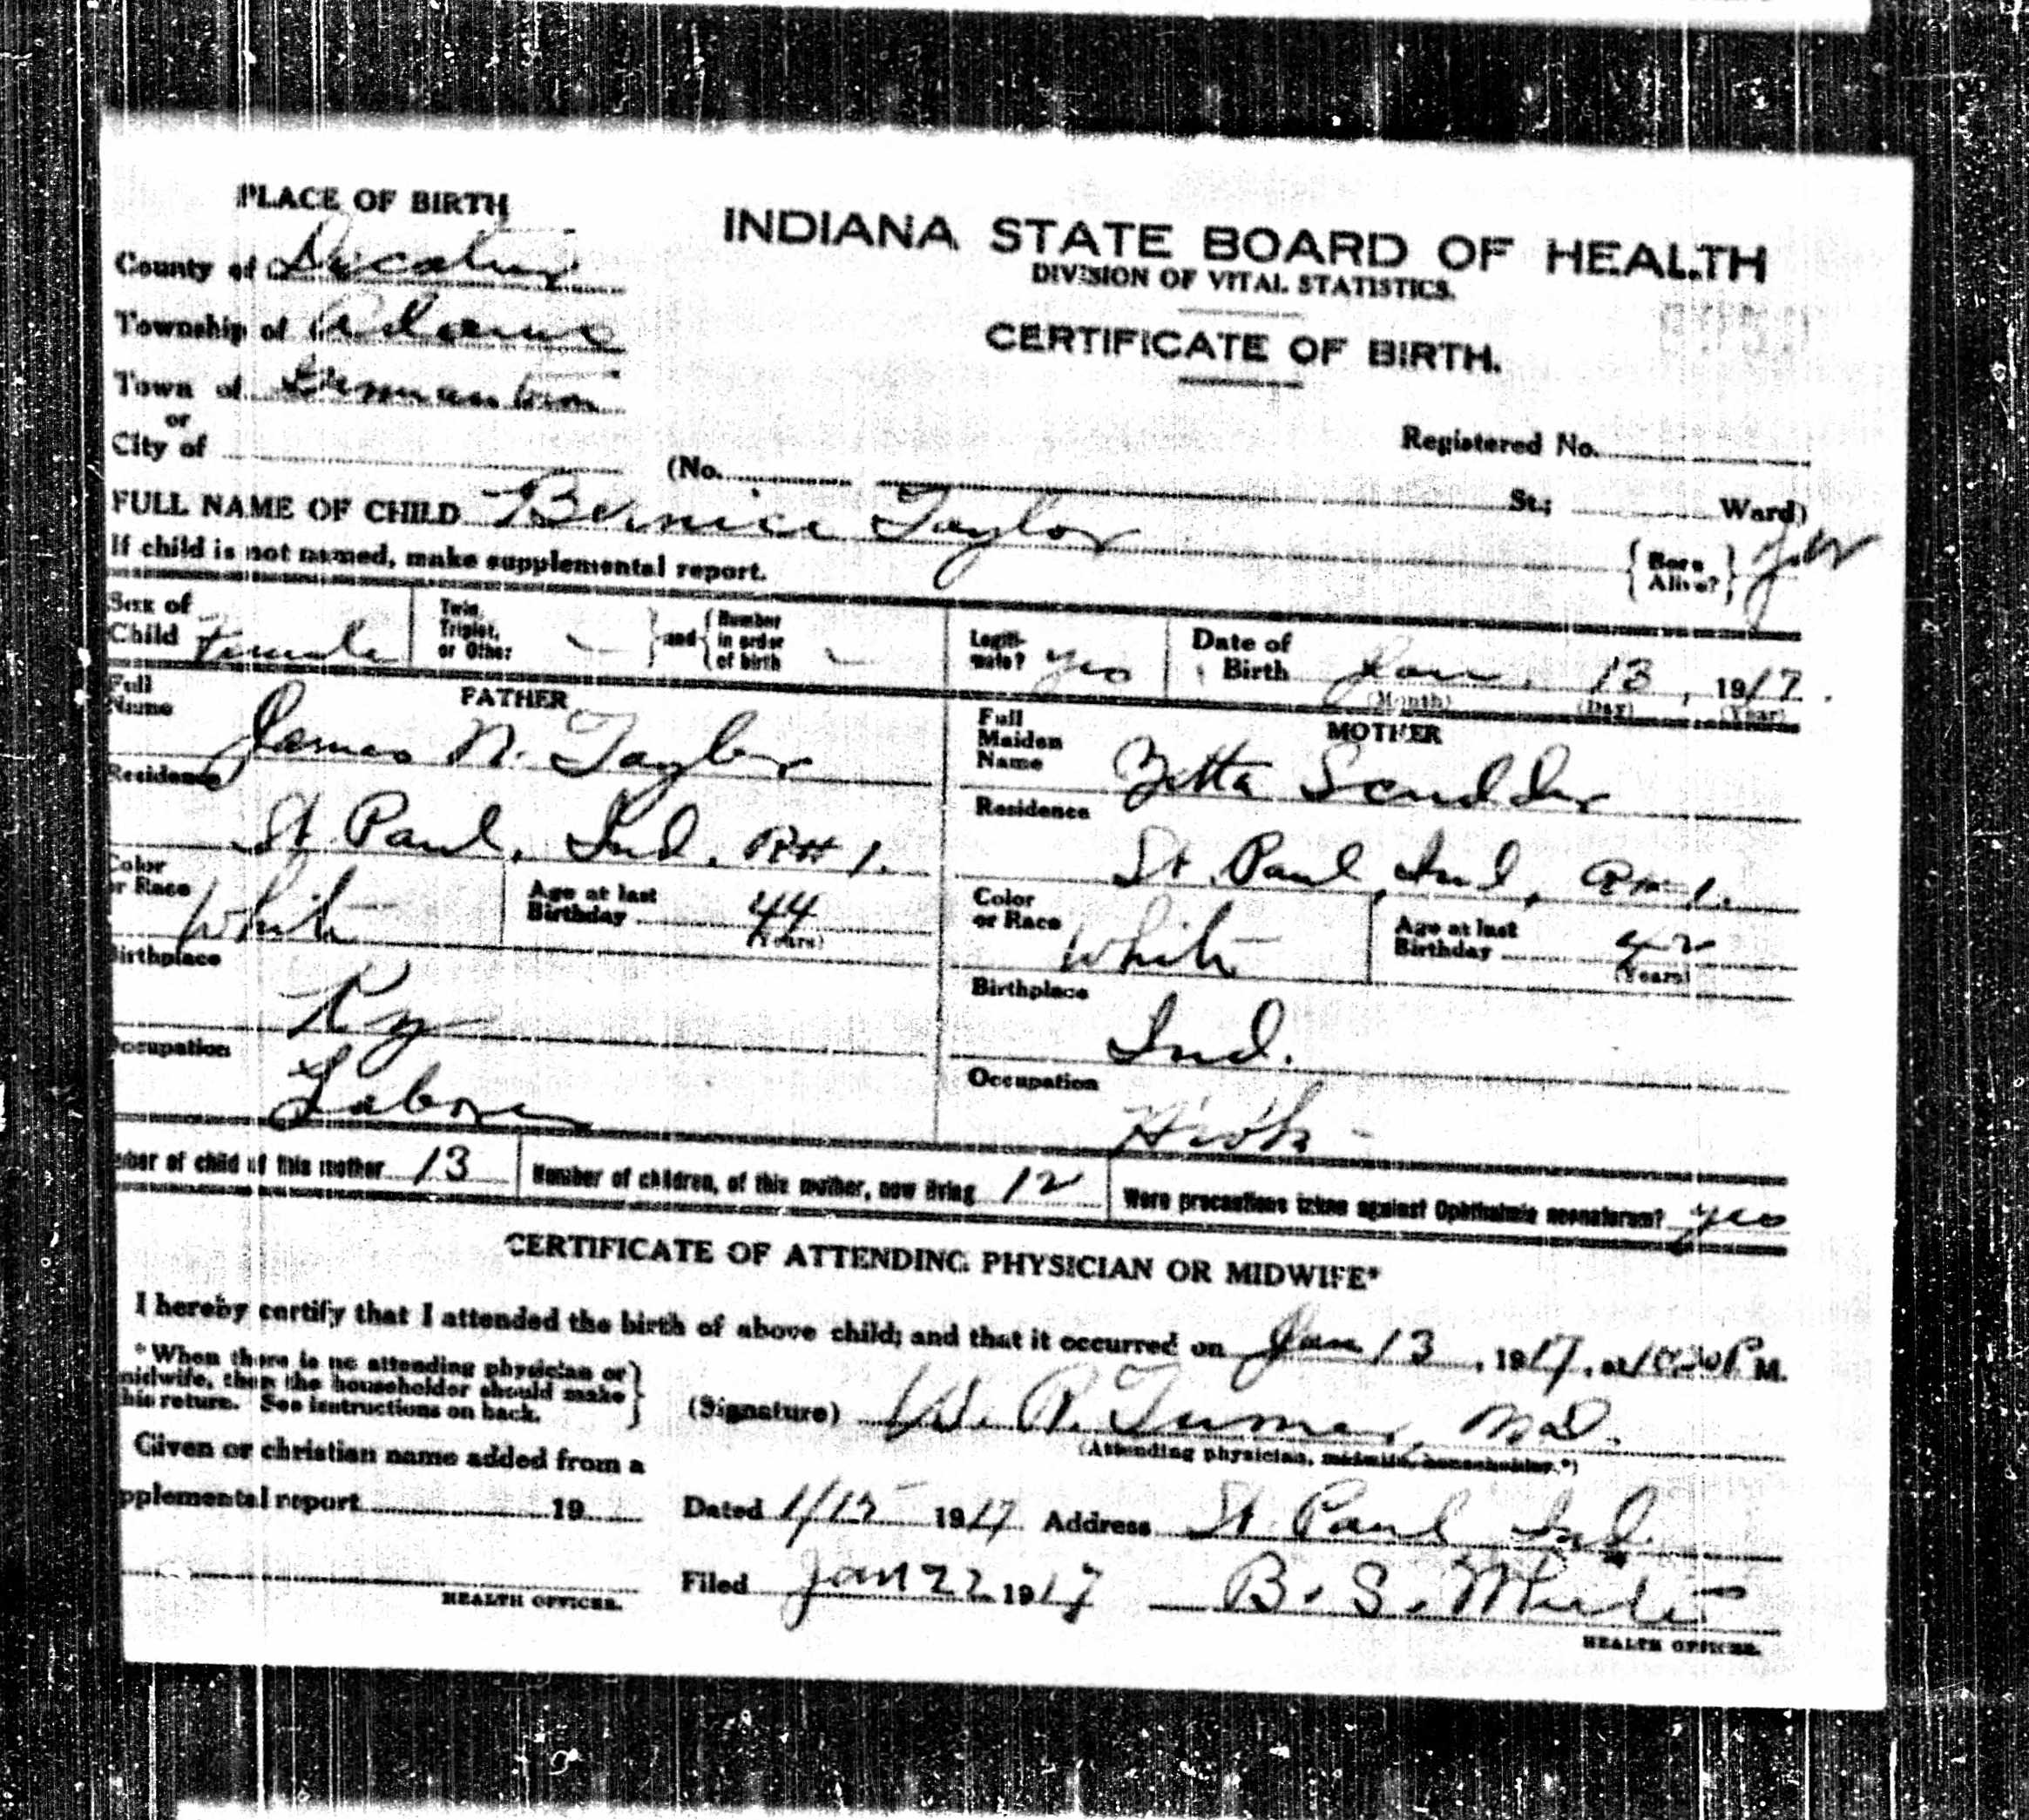 PLACE OF BIRTH
INDIANA STATE BOARD OF HEALTH
DIVISION OF VITAL STATISTICS.
CERTIFICATE OF BIRTH.
County of Decatur
Township of Adams
Town of Germantown
or
City of
Registered No.
(No. St.; Ward)
FULL NAME OF CHILD Bernice Taylor
If child is not named, make supplemental report.
{Born Alive?} yes
Sex of Child Female
Twin, Triplet, or Other } and { Number in order of birth
Legitimate? yes
Date of Birth Jan. 13, 1917.
(Month) (Day) (Year)
FATHER
Full Name James N. Taylor
Residence
St Paul, Ind. R#1.
Color or Race White
Age at last Birthday 44
(Years)
Birthplace
Ky
Occupation
Laborer
MOTHER
Full Maiden Name Zetta Scudder
Residence
St. Paul, Ind, R#1.
Color or Race White
Age at last Birthday 42
(Years)
Birthplace
Ind.
Occupation
mber of child of this mother 13
Number of children, of this mother, now living 12
Were precautions taken against Ophthalmia neonatorum? yes
CERTIFICATE OF ATTENDING PHYSICIAN OR MIDWIFE*
I hereby certify that I attended the birth of above child; and that it occurred on Jan 13, 1917, at P M.
*When there is no attending physician or
midwife, then the householder should make
his return. See instructions on back.
(Signature) W. R. Turner, MD.
(Attending physician, midwife, householder.*)
Given or christian name added from a
pplemental report 19
Dated 1/15 1917 Address St. Paul Ind.
Filed Jan 22 1917 B. S.
HEALTH OFFICER.
HEALTH OFFICER.